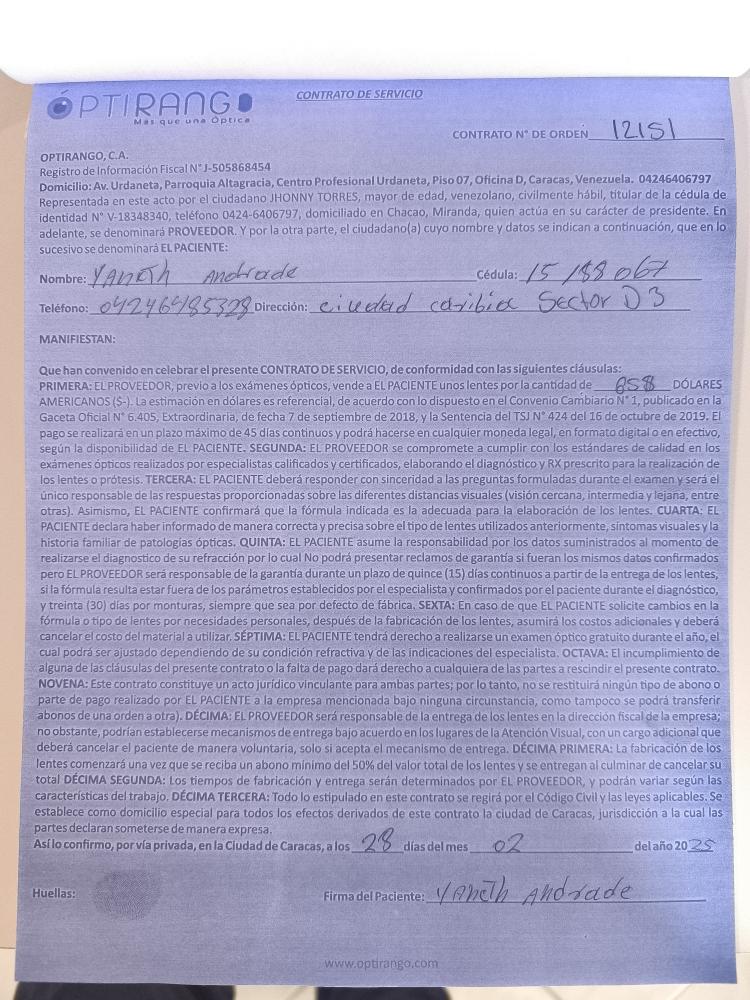 ÓPTIRANGO
Más que una Óptica
CONTRATO DE SERVICIO
CONTRATO N° DE ORDEN 12151
OPTIRANGO, C.A.
Registro de Información Fiscal N° J-505868454
Domicilio: Av. Urdaneta, Parroquia Altagracia, Centro Profesional Urdaneta, Piso 07, Oficina D, Caracas, Venezuela. 04246406797
Representada en este acto por el ciudadano JHONNY TORRES, mayor de edad, venezolano, civilmente hábil, titular de la cédula de
identidad N° V-18348340, teléfono 0424-6406797, domiciliado en Chacao, Miranda, quien actúa en su carácter de presidente. En
adelante, se denominará PROVEEDOR. Y por la otra parte, el ciudadano(a) cuyo nombre y datos se indican a continuación, que en lo
sucesivo se denominará EL PACIENTE:
Nombre: YANETH Andrade Cédula: 15 188 067
Teléfono: 04246485328 Dirección: ciudad caribia Sector D3
MANIFIESTAN:
Que han convenido en celebrar el presente CONTRATO DE SERVICIO, de conformidad con las siguientes cláusulas:
PRIMERA: EL PROVEEDOR, previo a los exámenes ópticos, vende a EL PACIENTE unos lentes por la cantidad de 658 DÓLARES
AMERICANOS ($-). La estimación en dólares es referencial, de acuerdo con lo dispuesto en el Convenio Cambiario N° 1, publicado en la
Gaceta Oficial N° 6.405, Extraordinaria, de fecha 7 de septiembre de 2018, y la Sentencia del TSJ N° 424 del 16 de octubre de 2019. El
pago se realizará en un plazo máximo de 45 días continuos y podrá hacerse en cualquier moneda legal, en formato digital o en efectivo,
según la disponibilidad de EL PACIENTE. SEGUNDA: EL PROVEEDOR se compromete a cumplir con los estándares de calidad en los
exámenes ópticos realizados por especialistas calificados y certificados, elaborando el diagnóstico y RX prescrito para la realización de
los lentes o prótesis. TERCERA: EL PACIENTE deberá responder con sinceridad a las preguntas formuladas durante el examen y será el
único responsable de las respuestas proporcionadas sobre las diferentes distancias visuales (visión cercana, intermedia y lejana, entre
otras). Asimismo, EL PACIENTE confirmará que la fórmula indicada es la adecuada para la elaboración de los lentes. CUARTA: EL
PACIENTE declara haber informado de manera correcta y precisa sobre el tipo de lentes utilizados anteriormente, síntomas visuales y la
historia familiar de patologías ópticas. QUINTA: EL PACIENTE asume la responsabilidad por los datos suministrados al momento de
realizarse el diagnostico de su refracción por lo cual No podrá presentar reclamos de garantía si fueran los mismos datos confirmados
pero EL PROVEEDOR será responsable de la garantía durante un plazo de quince (15) días continuos a partir de la entrega de los lentes,
si la fórmula resulta estar fuera de los parámetros establecidos por el especialista y confirmados por el paciente durante el diagnóstico,
y treinta (30) días por monturas, siempre que sea por defecto de fábrica. SEXTA: En caso de que EL PACIENTE solicite cambios en la
fórmula o tipo de lentes por necesidades personales, después de la fabricación de los lentes, asumirá los costos adicionales y deberá
cancelar el costo del material a utilizar. SÉPTIMA: EL PACIENTE tendrá derecho a realizarse un examen óptico gratuito durante el año, el
cual podrá ser ajustado dependiendo de su condición refractiva y de las indicaciones del especialista. OCTAVA: El incumplimiento de
alguna de las cláusulas del presente contrato o la falta de pago dará derecho a cualquiera de las partes a rescindir el presente contrato.
NOVENA: Este contrato constituye un acto jurídico vinculante para ambas partes; por lo tanto, no se restituirá ningún tipo de abono o
parte de pago realizado por EL PACIENTE a la empresa mencionada bajo ninguna circunstancia, como tampoco se podrá transferir
abonos de una orden a otra). DÉCIMA: EL PROVEEDOR será responsable de la entrega de los lentes en la dirección fiscal de la empresa;
no obstante, podrían establecerse mecanismos de entrega bajo acuerdo en los lugares de la Atención Visual, con un cargo adicional que
deberá cancelar el paciente de manera voluntaria, solo si acepta el mecanismo de entrega. DÉCIMA PRIMERA: La fabricación de los
lentes comenzará una vez que se reciba un abono mínimo del 50% del valor total de los lentes y se entregan al culminar de cancelar su
total DÉCIMA SEGUNDA: Los tiempos de fabricación y entrega serán determinados por EL PROVEEDOR, y podrán variar según las
características del trabajo. DÉCIMA TERCERA: Todo lo estipulado en este contrato se regirá por el Código Civil y las leyes aplicables. Se
establece como domicilio especial para todos los efectos derivados de este contrato la ciudad de Caracas, jurisdicción a la cual las
partes declaran someterse de manera expresa.
Así lo confirmo, por vía privada, en la Ciudad de Caracas, a los 28 días del mes 02 del año 2025
Huellas: Firma del Paciente: YANETH Andrade
www.optirango.com